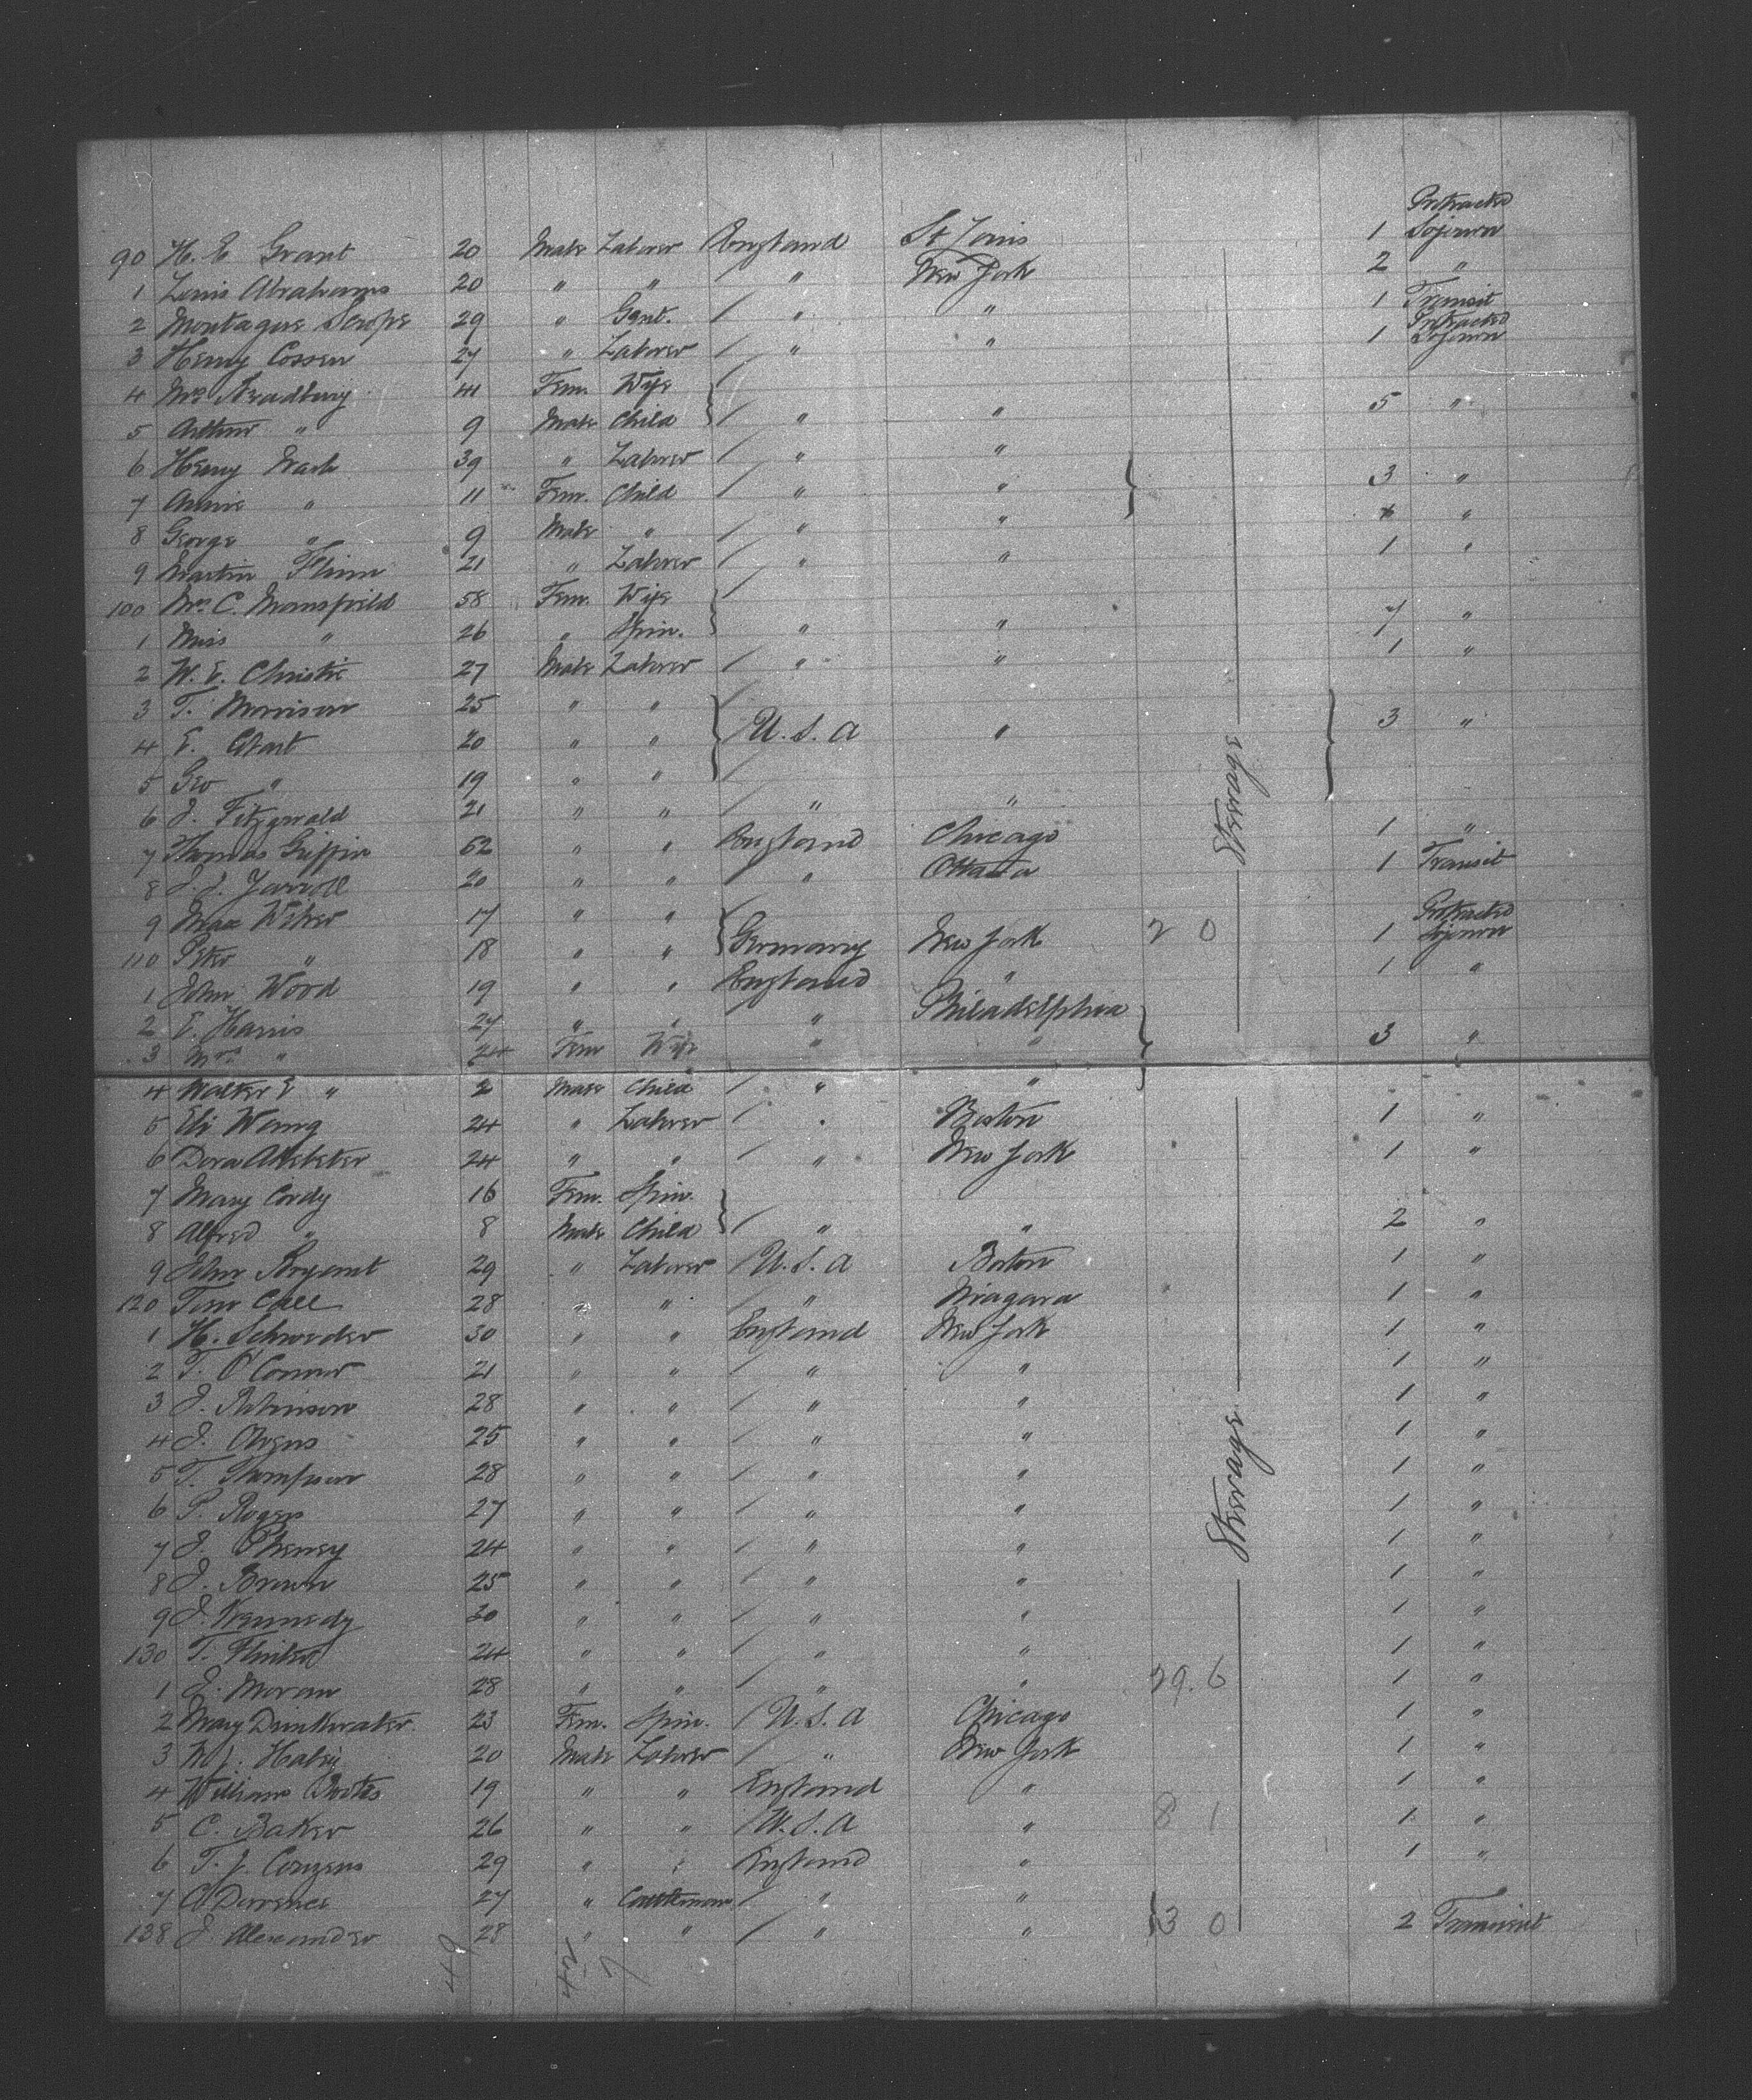 Protracted
90 H. E Grant 20 Male Laborer England St Louis 1 Sojourn
1 Louis Abrahams 20 " " " New York 2 "
2 Montague Scrope 29 " Gent. / " " 1 Transit
3 Henry Cossen 27 " Laborer / " " 1 Protracted Sojourn
4 Mrs Bradbury 41 Fem. Wife /
5 Arthur " 9 Male Child / " " 5 "
6 Henry Nash 39 " Laborer / " "
7 Annie " 11 Fem. Child / " " 3 "
8 George " 9 Male " / " " "
9 Martin Flinn 21 " Laborer / " " 1 "
100 Mrs C. Mansfield 58 Fem. Wife /
1 Miss " 26 " Spin. " " 7 "
2 W. E. Christie 27 Male Laborer / " " 1 "
3 T. Morrison 25 " " /
4 E. 20 " " / U. S. A " 3 "
5 Geo " 19 " " /
6 J. Fitzgerald 21 " " / " "
7 Thomas Griffin 62 " " England Chicago 1 "
8 J. J. Jarroll 20 " " / " Ottawa 1 Transit
9 Max Weber 17 " " /
110 Peter " 18 " " Germany New York 2 0 1 Protracted Sojourn
1 John Wood 19 " " England " 1 "
2 E. Harris 27 " " " Philadelphia
3 Mrs " 24 Fem Wife " " 3 "
4 Walter E " 2 Male Child / " "
5 Eli 24 " Laborer / " Boston 1 "
6 Dora 24 " " / " New York 1 "
7 Mary Cordy 16 Fem. Spin.
8 Alfred " 8 Male Child / " " 2 "
9 John Bryant 29 " Laborer / U. S. A Boston 1 "
120 Tom Call 28 " " / " Niagara 1 "
1 H. Schroeder 30 " " England New York 1 "
2 T. O'Connor 21 " " / " " 1 "
3 J. Robinson 28 " " / " " 1 "
4 J. 25 " " / " " 1 "
5 T. Thompson 28 " " / " " 1 "
6 P. Rogers 27 " " / " " 1 "
7 J. 24 " " / " " 1 "
8 J. Brown 25 " " / " " 1 "
9 J. Kennedy 30 " " / " " 1 "
130 T. 24 " " / " " 1 "
1 J. Moran 28 " " / " " 29.6 1 "
2 Mary Drinkwater 23 Fem. Spin. / U. S. A Chicago 1 "
3 M. J. 20 Male Laborer / " New York 1 "
4 William 19 " " England " 1 "
5 C. Baker 26 " " / U. S. A " 8 1 1 "
6 T. J. Couzens 29 " " England " 1 "
7 27 " Cattleman / " "
138 J. Alexander 28 " " / " " 13 0 2 Transient
Steerage
Steerage